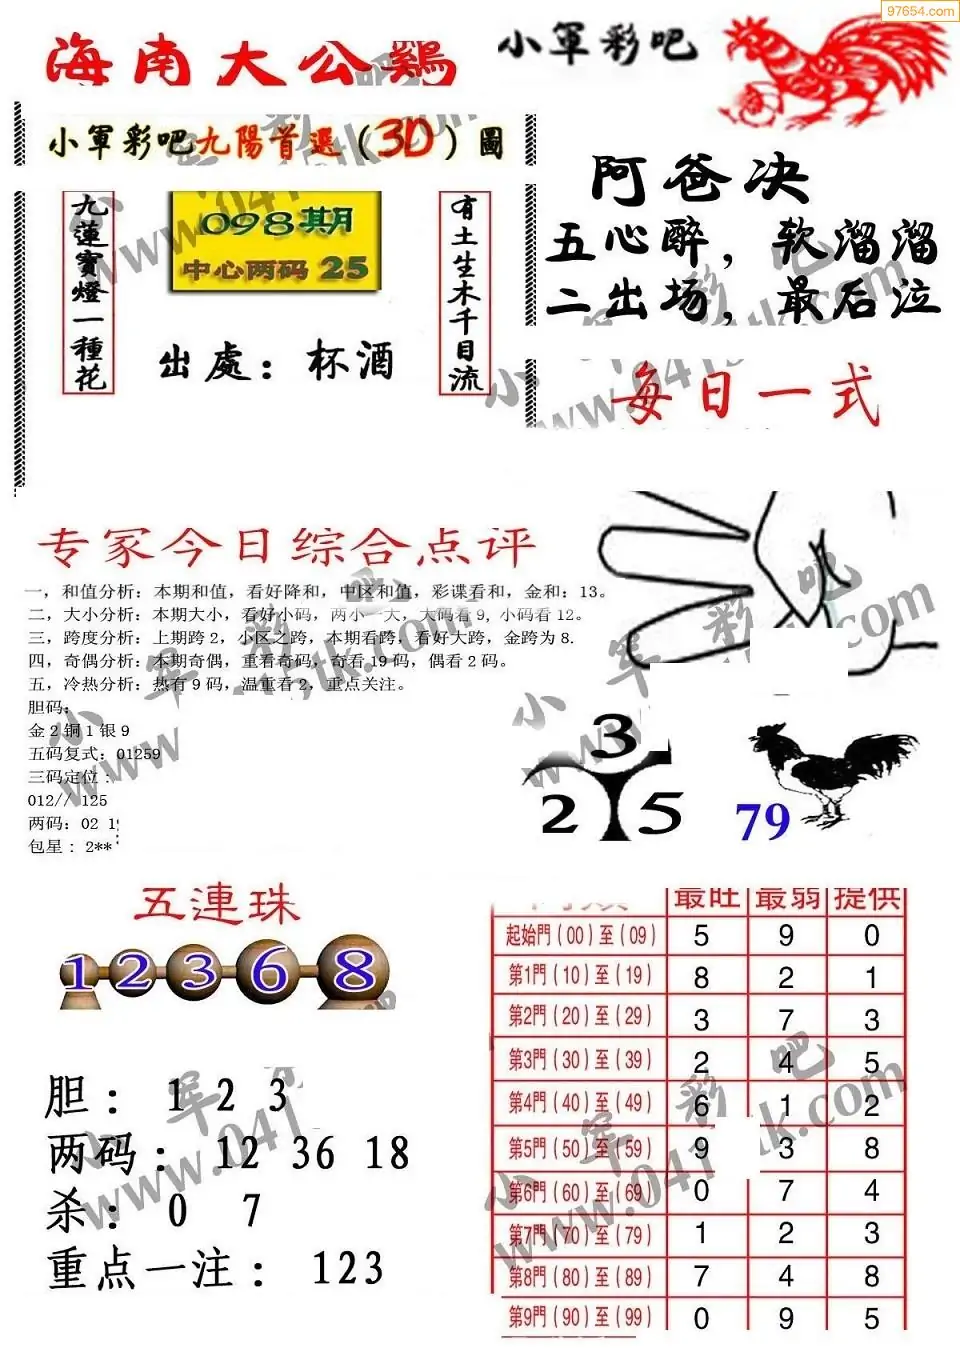 97654.com
海南大公鷄
小軍彩吧
小軍彩吧九陽首選（3D）圖
九蓮寶燈一種花
098期
中心两码 25
出處：杯酒
有土生木千目流
阿爸决
五心醉，软溜溜
二出场，最后泣
每日一式
专家今日综合点评
一，和值分析：本期和值，看好降和，中区和值，彩谍看和，金和：13。
二，大小分析：本期大小，看好小码，两小一大，大码看 9，小码看 12。
三，跨度分析：上期跨 2，小区之跨，本期看跨，看好大跨，金跨为 8.
四，奇偶分析：本期奇偶，重看奇码，奇看 19 码，偶看 2 码。
五，冷热分析：热有 9 码，温重看 2，重点关注。
胆码：
金 2 铜 1 银 9
五码复式：01259
三码定位：
012// 125
两码：02 19
包星：2**
3
2 5
79
五連珠
1 2 3 6 8
胆： 1 2 3
两码： 12 36 18
杀： 0 7
重点一注： 123
最旺 最弱 提供
起始門（00）至（09） 5 9 0
第1門（10）至（19） 8 2 1
第2門（20）至（29） 3 7 3
第3門（30）至（39） 2 4 5
第4門（40）至（49） 6 1 2
第5門（50）至（59） 9 3 8
第6門（60）至（69） 0 7 4
第7門（70）至（79） 1 2 3
第8門（80）至（89） 7 4 8
第9門（90）至（99） 0 9 5